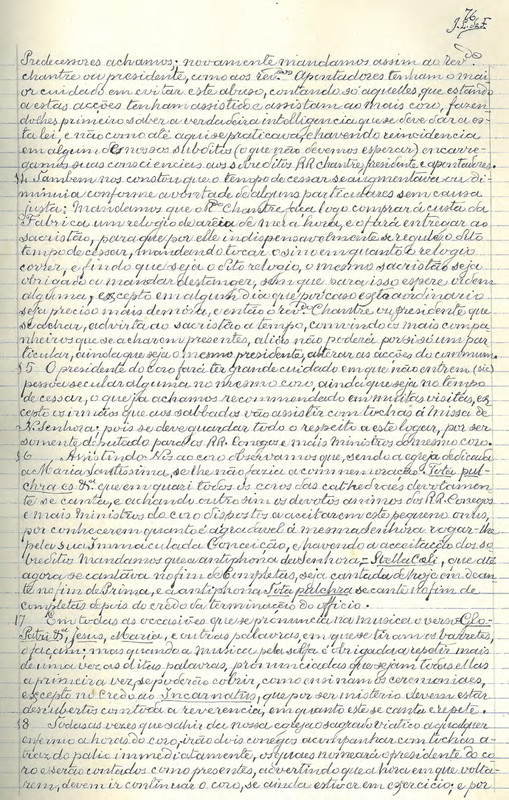 76
Predecessores achamos; novamente mandamos assim ao rev.do
chantre ou presidente, como aos rev.dos Apontadores tenham o mai
or cuidado em evitar este abuso, contando só aquelles que estando
a estas acções tenham assistido e assistam ao mais coro, fazen
do lhes primeiro saber a verdadeira intelligencia que se deve dar a es
ta lei, e não como até aqui se praticava, e havendo reincidencia
em algum de nossos subditos (o que não devemos esperar) encarre
gamos suas consciencias aos sobreditos RR Chantre, presidente e apontadores.
§4 Tambem nos constou que o tempo de cessar se augmentava ou di
minuia conforme a vontade de alguns particulares sem causa
justa: Mandamos que o R.do Chantre faça logo comprar á custa da
Fabrica um relogio de arêia de meia hora, e o fará entregar ao
sacristão, para que por elle indispensavelmente se regule o dito
tempo de cessar, mandando tocar o sino em quanto o relogio
correr, e findo que seja o dito relogio, o mesmo sacristão seja
obrigado a mandar destanger, sem que para isso espere ordem
alguma, excepto em algum dia que por caso extraordinario
seja preciso mais demóra, e então o rev.do Chantre ou presidente que
se achar, advirta ao sacristão a tempo, convindo os mais compa
nheiros que se acharem presentes, aliás não poderá por si só um par
ticular, ainda que seja o mesmo presidente, alterar as acções do commum.
§5 O presidente do coro fará ter grande cuidado em que não entrem (sic)
pessoa secular alguma no mesmo coro, ainda que seja no tempo
de cessar, o que já achamos recommendado em muitas visitas, ex
cepto os irmãos que aos sabbados vão assistir com tochas á Missa de
N. Senhora; pois se deve guardar todo o respeito a este logar, por ser
somente deputado para os RR. Conegos e mais Ministros do mesmo coro.
§6 Assistindo Nós ao coro observamos que, sendo a egreja dedicada
a Maria Santissima, se lhe não fazia a commemoração Tota pul-
chra es &.a que em quasi todos os coros das cathedraes devotamen
te se canta, e achando outro sim os devotos animos dos RR. Conegos
e mais Ministros do coro dispostos a aceitarem este pequeno onus,
por conhecerem quanto é agradavel á mesma Senhora rogar-lhe
pela sua Immaculada Conceição, e havendo a acceitação dos so
breditos Mandamos que a antiphona da Senhora - Stella Cœli, que até
agora se cantava no fim de Completas, seja cantada de hoje em dean
te no fim de Prima, e a antiphona Tota pulchra se cante no fim de
completas depois do credo da terminação do officio.
§7 Em todas as occasiões que se pronuncia na musica o verso Glo-
ria Patri &, Jesus, Maria, e outras palavras em que se tiram os barretes,
o façam; mas quando a musica pela solfa é obrigada a repetir mais
de uma vez as ditas palavras, pronunciadas que sejam todas ellas
a primeira vez, se poderão cobrir, como ensinam os ceremoniaes,
excepto no Credo ao Incarnatus, que por ser misterio devem estar
descubertos com toda a reverencia, em quanto este se canta e repete.
§8 Todas as vezes que sahir da nossa egreja o sagrado viatico a qualquer
enfermo a horas do coro, irão dois conegos acompanhar com tochas a
traz do palio immediatamente, os quaes nomeará o presidente do co
ro e serão contados como presentes, advertindo que a hora em que volta-
rem, devem ir continuar o coro, se ainda estiver em exercicio; e por